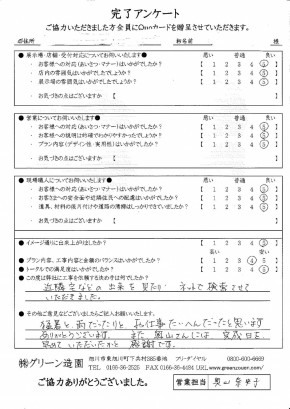 完了アンケート
ご協力いただきました方全員にQuoカードを贈呈させていただきます。
ご住所 お名前 様
●展示場・店舗・受付対応についてお伺いします● 悪い 普通 良い
・お客様への対応(あいさつ・マナー)はいかがでしたか? 【 1 2 3 4 5 】
・店内の雰囲気はいかがでしたか? 【 1 2 3 4 5 】
・展示場の雰囲気はいかがでしたか? 【 1 2 3 4 5 】
・お気づきの点はございますか
●営業についてお伺いします● 悪い 普通 良い
・お客様への対応(あいさつ・マナー)はいかがでしたか? 【 1 2 3 4 5 】
・お客様への説明は的確でわかりやすかったでしょうか? 【 1 2 3 4 5 】
・プラン内容(デザイン性・実用性)はいかがでしたか? 【 1 2 3 4 5 】
・お気づきの点はございますか
●現場職人についてお伺いします● 悪い 普通 良い
・お客様への対応(あいさつ・マナー)はいかがでしたか? 【 1 2 3 4 5 】
・お客さまへの安全面や近隣住民への配慮はいかがでしたか? 【 1 2 3 4 5 】
・道具、材料の後片付けや道路の清掃はしっかりできていましたか? 【 1 2 3 4 5 】
・お気づきの点はございますか
●イメージ通りに出来上がりましたか? 【 1 2 3 4 5 】
●プラン内容、工事内容と金額のバランスはいかがでしたか? 【 1 2 3 4 5 】
●トータルでの満足度はいかがでしたか? 【 1 2 3 4 5 】
●この度は弊社に工事を依頼する決め手は何でしたか?
近隣宅などの出来を見たり、ネットで検索させて
いただきました。
●その他ご意見などございましたらご記入お願いします。
猛暑と、雨だったりと、お仕事たいへんだったと思います
ありがとうございます。また、奥山さんには、完成日を
早めていただいたかと 感謝です。
㈱グリーン造園 旭川市東旭川町下兵村385番地 フリーダイヤル 0800-600-6669
TEL 0166-36-2525 FAX 0166-35-4494 URL www.greenzouen.com/
ご協力ありがとうございました。 営業担当 奥山奈中子